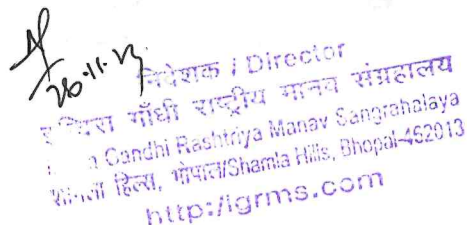 26.11.13
निदेशक / Director
गाँधी राष्ट्रीय मानव संग्रहालय
Gandhi Rashtriya Manav Sangrahalaya
हिल्स, भोपाल/Shamla Hills, Bhopal-462013
http:/igrms.com